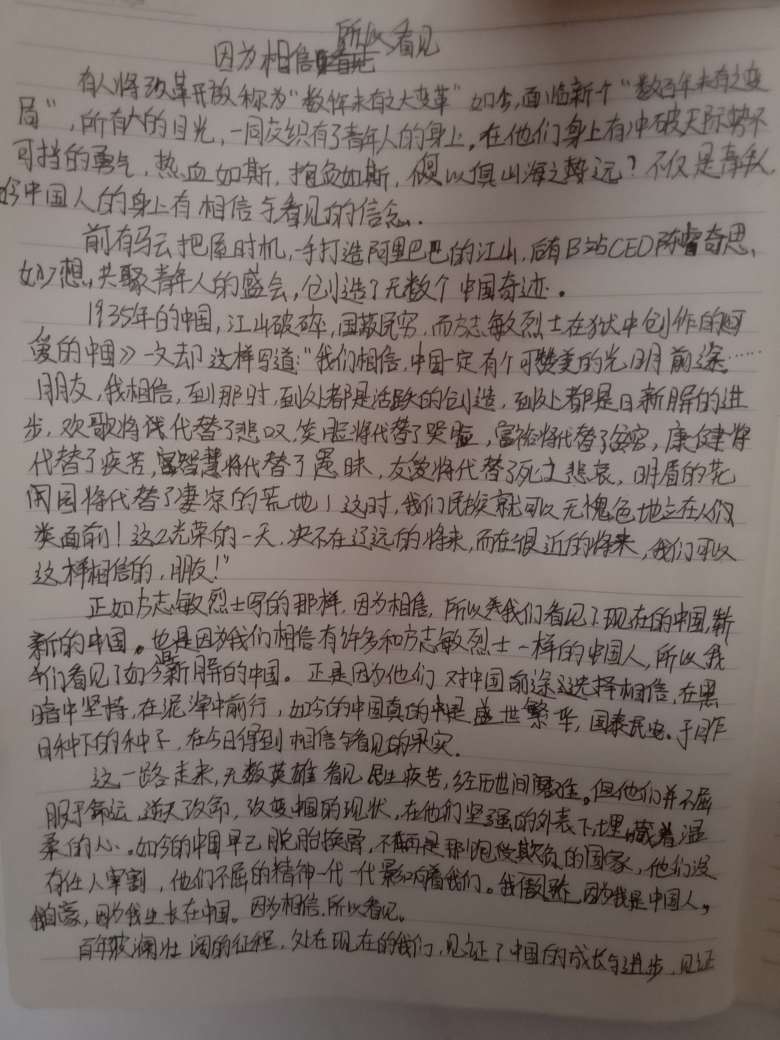 因为相信所以看见
有人将改革开放称为“数千年未有之大变革”如今,面临新个“数百年未有之变
局”,所有人的目光,一同交织有了青年人的身上。在他们身上有冲破天际势不
可挡的勇气,热血如斯,抱负如斯,何以俱山海之势远?不仅是青年人
如今中国人的身上有相信与看见的信念.
前有马云把握时机,一手打造阿里巴巴的江山,后有B站CEO陈睿奇思,
妙想,共聚青年人的盛会,创造了无数个中国奇迹。
1935年的中国,江山破碎,国敝民穷,而方志敏烈士在狱中创作的《可
爱的中国》一文却这样写道:“我们相信,中国一定有个可赞美的光明前途……
朋友,我相信,到那时,到处都是活跃的创造,到处都是日新月异的进
步,欢歌将代替了悲叹,笑脸将代替了哭脸,富裕将代替了贫穷,康健将
代替了疾苦,智慧将代替了愚昧,友爱将代替了死之悲哀,明眉的花
园将代替了凄凉的荒地!这时,我们民族就可以无愧色地立在人们
类面前!这么光荣的一天,决不在辽远的将来,而在很近的将来,我们可以
这样相信的,朋友!”
正如方志敏烈士写的那样,因为相信,所以我们看见了现在的中国,崭
新的中国。也是因为我们相信有许多和方志敏烈士一样的中国人,所以我
们看见了如今新的中国。正是因为他们对中国前途选择相信,在黑
暗中坚持,在泥泞中前行,如今的中国真的是盛世繁华,国泰民安。于昨
日种下的种子,在今日得到相信与看见的果实.
这一路走来,无数英雄看见民生疾苦,经历世间磨难。但他们并不屈
服于命运,逆天改命,改变中国的现状,在他们坚强的外表下埋藏着温
柔的心。如今的中国早已脱胎换骨,不再是那饱受欺负的国家,他们没
有任人宰割,他们不屈的精神一代一代影响着我们。我傲骄,因为我是中国人,
我自豪,因为我生长在中国。因为相信,所以看见。
百年波澜壮阔的征程,处在现在的我们,见证了中国的成长与进步,见证